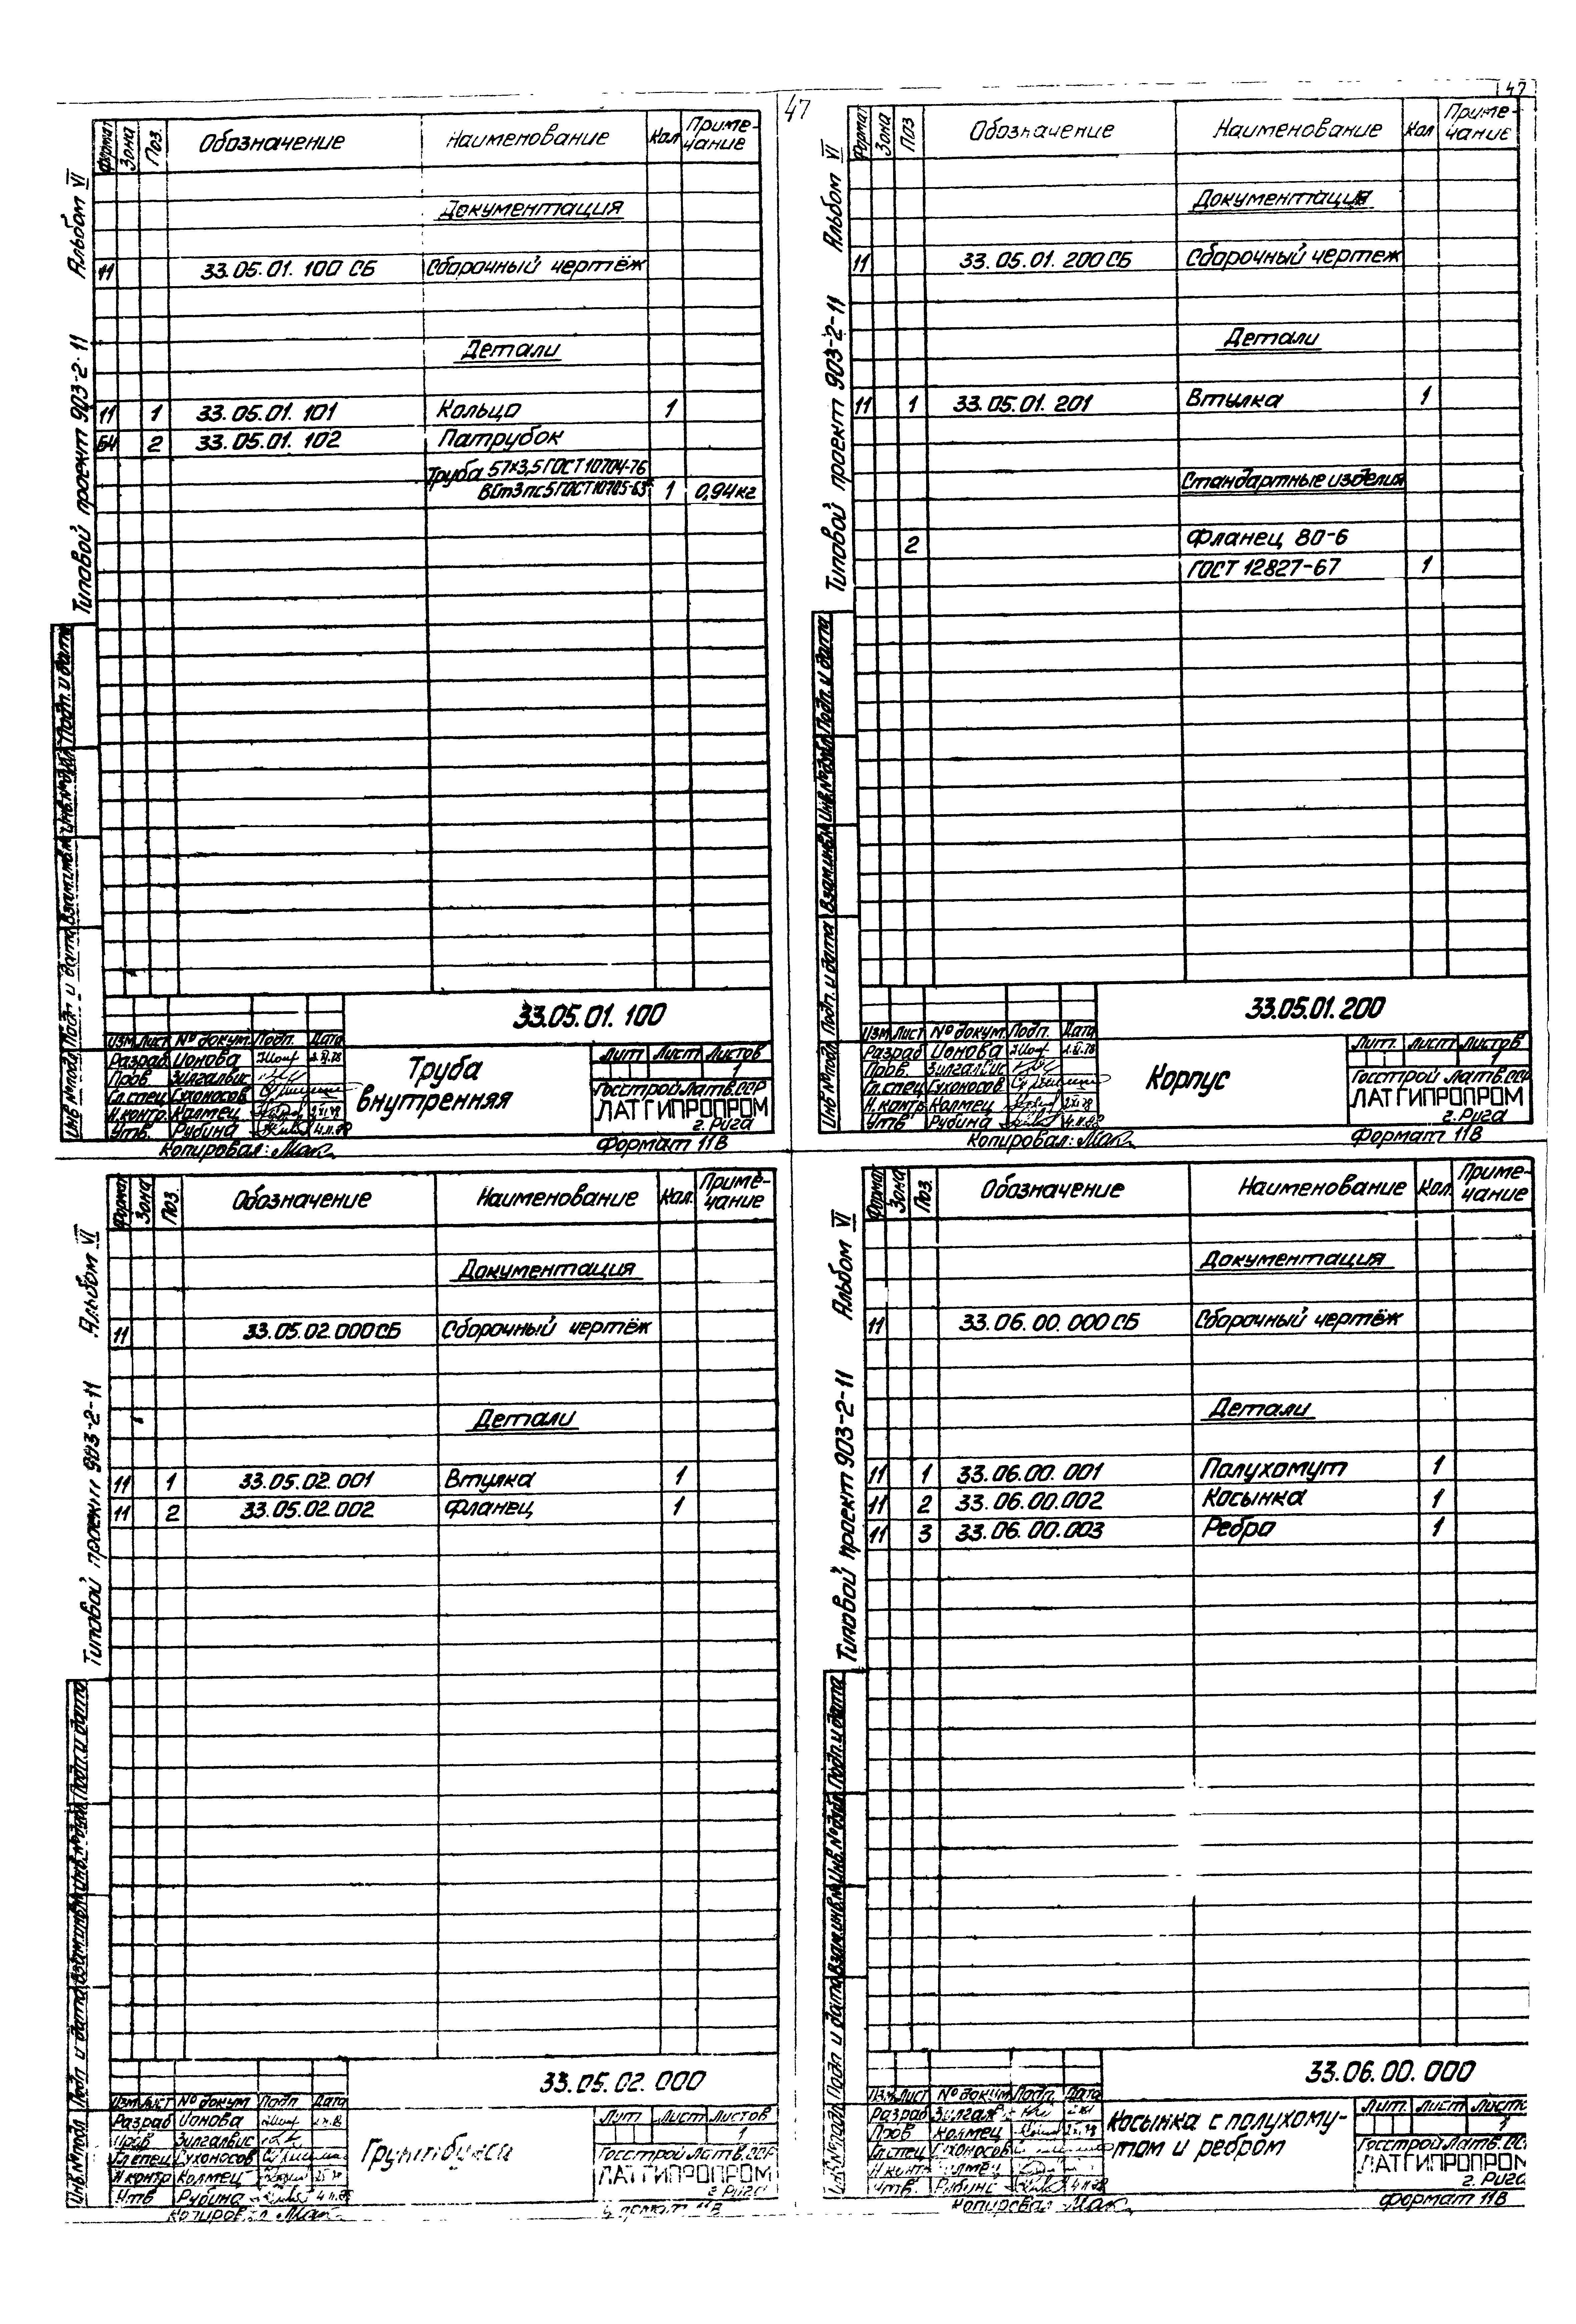 47
47
Альбом VI
Типовой проект 903-2-11
Формат Зона Поз. Обозначение Наименование Кол Примечание
Документация
11 33.05.01.100 СБ Сборочный чертёж
Детали
11 1 33.05.01.101 Кольцо 1
БЧ 2 33.05.01.102 Патрубок
Труба 57×3,5 ГОСТ 10704-76
ВСт3пс5 ГОСТ 10705-63 1 0,94кг
Инв.№подл. Подп. и дата Взам.инв.№ Инв.№дубл. Подп. и дата
33.05.01.100
Изм Лист № докум. Подп. Дата
Разраб Ионова
Пров. Зилгалвис
Гл.спец Сухоносов
Н.контр. Колмец
Утв. Рубина
Труба
внутренняя
Лит Лист Листов
1
Госстрой Латв.ССР
ЛАТГИПРОПРОМ
г. Рига
Копировал:
Формат 11В
Альбом VI
Типовой проект 903-2-11
Формат Зона Поз Обозначение Наименование Кол Примечание
Документация
11 33.05.01.200 СБ Сборочный чертеж
Детали
11 1 33.05.01.201 Втулка 1
Стандартные изделия
2 Фланец 80-6
ГОСТ 12827-67 1
Инв.№подл. Подп. и дата Взам.инв.№ Инв.№дубл. Подп. и дата
33.05.01.200
Изм Лист № докум. Подп. Дата
Разраб Ионова
Пров. Зилгалвис
Гл.спец Сухоносов
Н.контр. Колмец
Утв Рубина
Корпус
Лит. Лист Листов
1
Госстрой Латв.ССР
ЛАТГИПРОПРОМ
г. Рига
Копировал:
Формат 11В
Альбом VI
Типовой проект 903-2-11
Формат Зона Поз. Обозначение Наименование Кол. Примечание
Документация
11 33.05.02.000 СБ Сборочный чертёж
Детали
11 1 33.05.02.001 Втулка 1
11 2 33.05.02.002 Фланец 1
Инв.№подл Подп и дата Взам.инв.№ Инв.№дубл. Подп. и дата
33.05.02.000
Изм Лист № докум Подп Дата
Разраб Ионова
Пров Зилгалвис
Гл.спец Сухоносов
Н контр Колмец
Утв Рубина
Грундбукса
Лит Лист Листов
1
Госстрой Латв.ССР
ЛАТГИПРОПРОМ
г. Рига
Формат 11В
Альбом VI
Типовой проект 903-2-11
Формат Зона Поз Обозначение Наименование Кол. Примечание
Документация
11 33.06.00.000 СБ Сборочный чертёж
Детали
11 1 33.06.00.001 Полухомут 1
11 2 33.06.00.002 Косынка 1
11 3 33.06.00.003 Ребро 1
Инв.№подл. Подп и дата Взам.инв.№ Инв.№дубл. Подп. и дата
33.06.00.000
Изм Лист № докум Подп. Дата
Разраб Зилгалв
Пров Колмец
Гл.спец Сухоносов
Утв. Рубина
Косынка с полухому-
том и ребром
Лит. Лист Листо
1
Госстрой Латв.СС
ЛАТГИПРОПРОМ
г. Рига
Копировал
Формат 11В